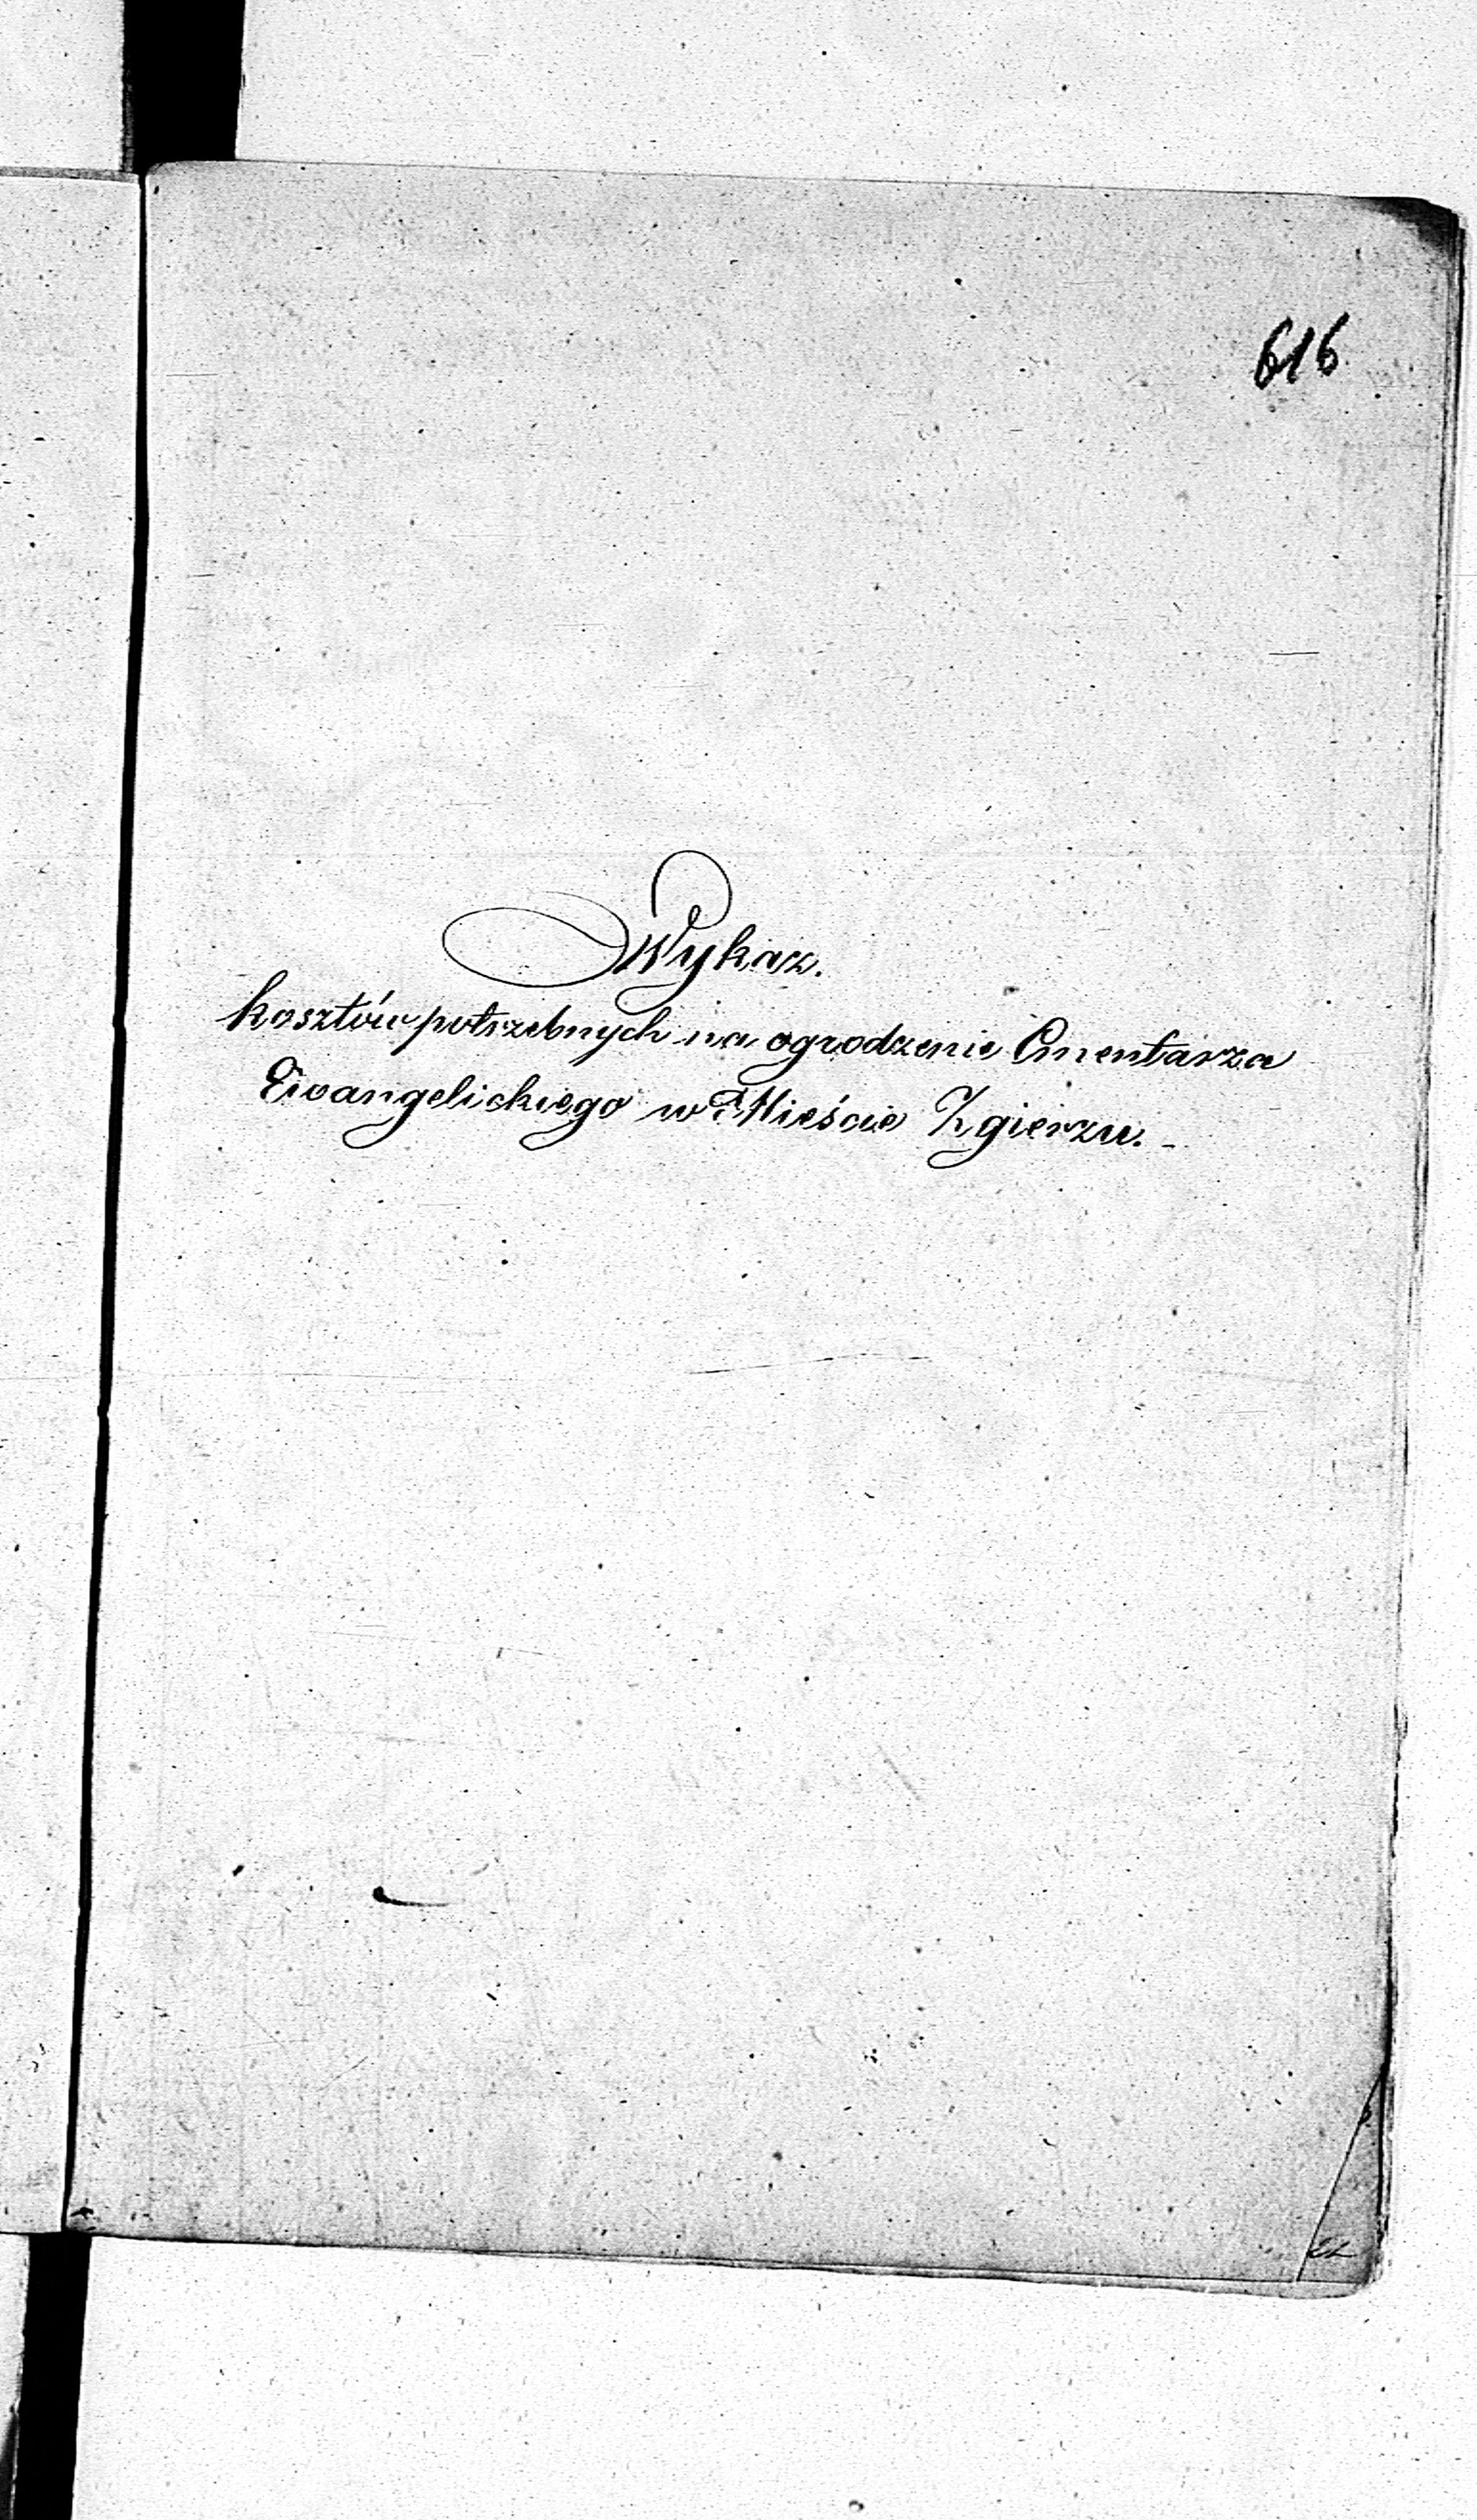 616
Wykaz.
kosztów potrzebnych na ogrodzenie Cmentarza
Ewangelickiego w Mieście Zgierzu. -